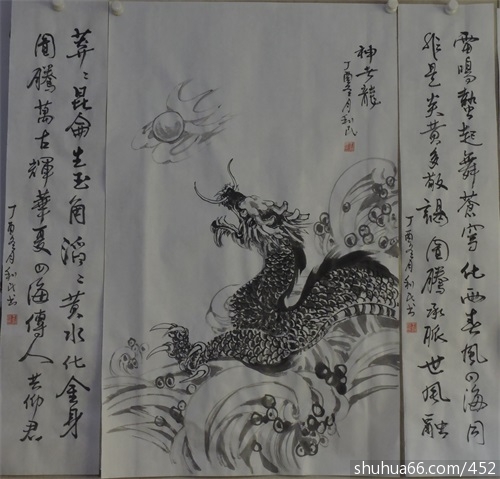 雷鳴蟄起舞蒼穹化雨春風四海同
是炎黃多敬謁圖騰承脈世風融
丁酉冬月和民書
神龍
丁酉冬月和民
莽々昆侖生玉角滔々黃水化金身
圖騰萬古輝華夏四海傳人共仰君
丁酉冬月和民書
shuhua66.com/452